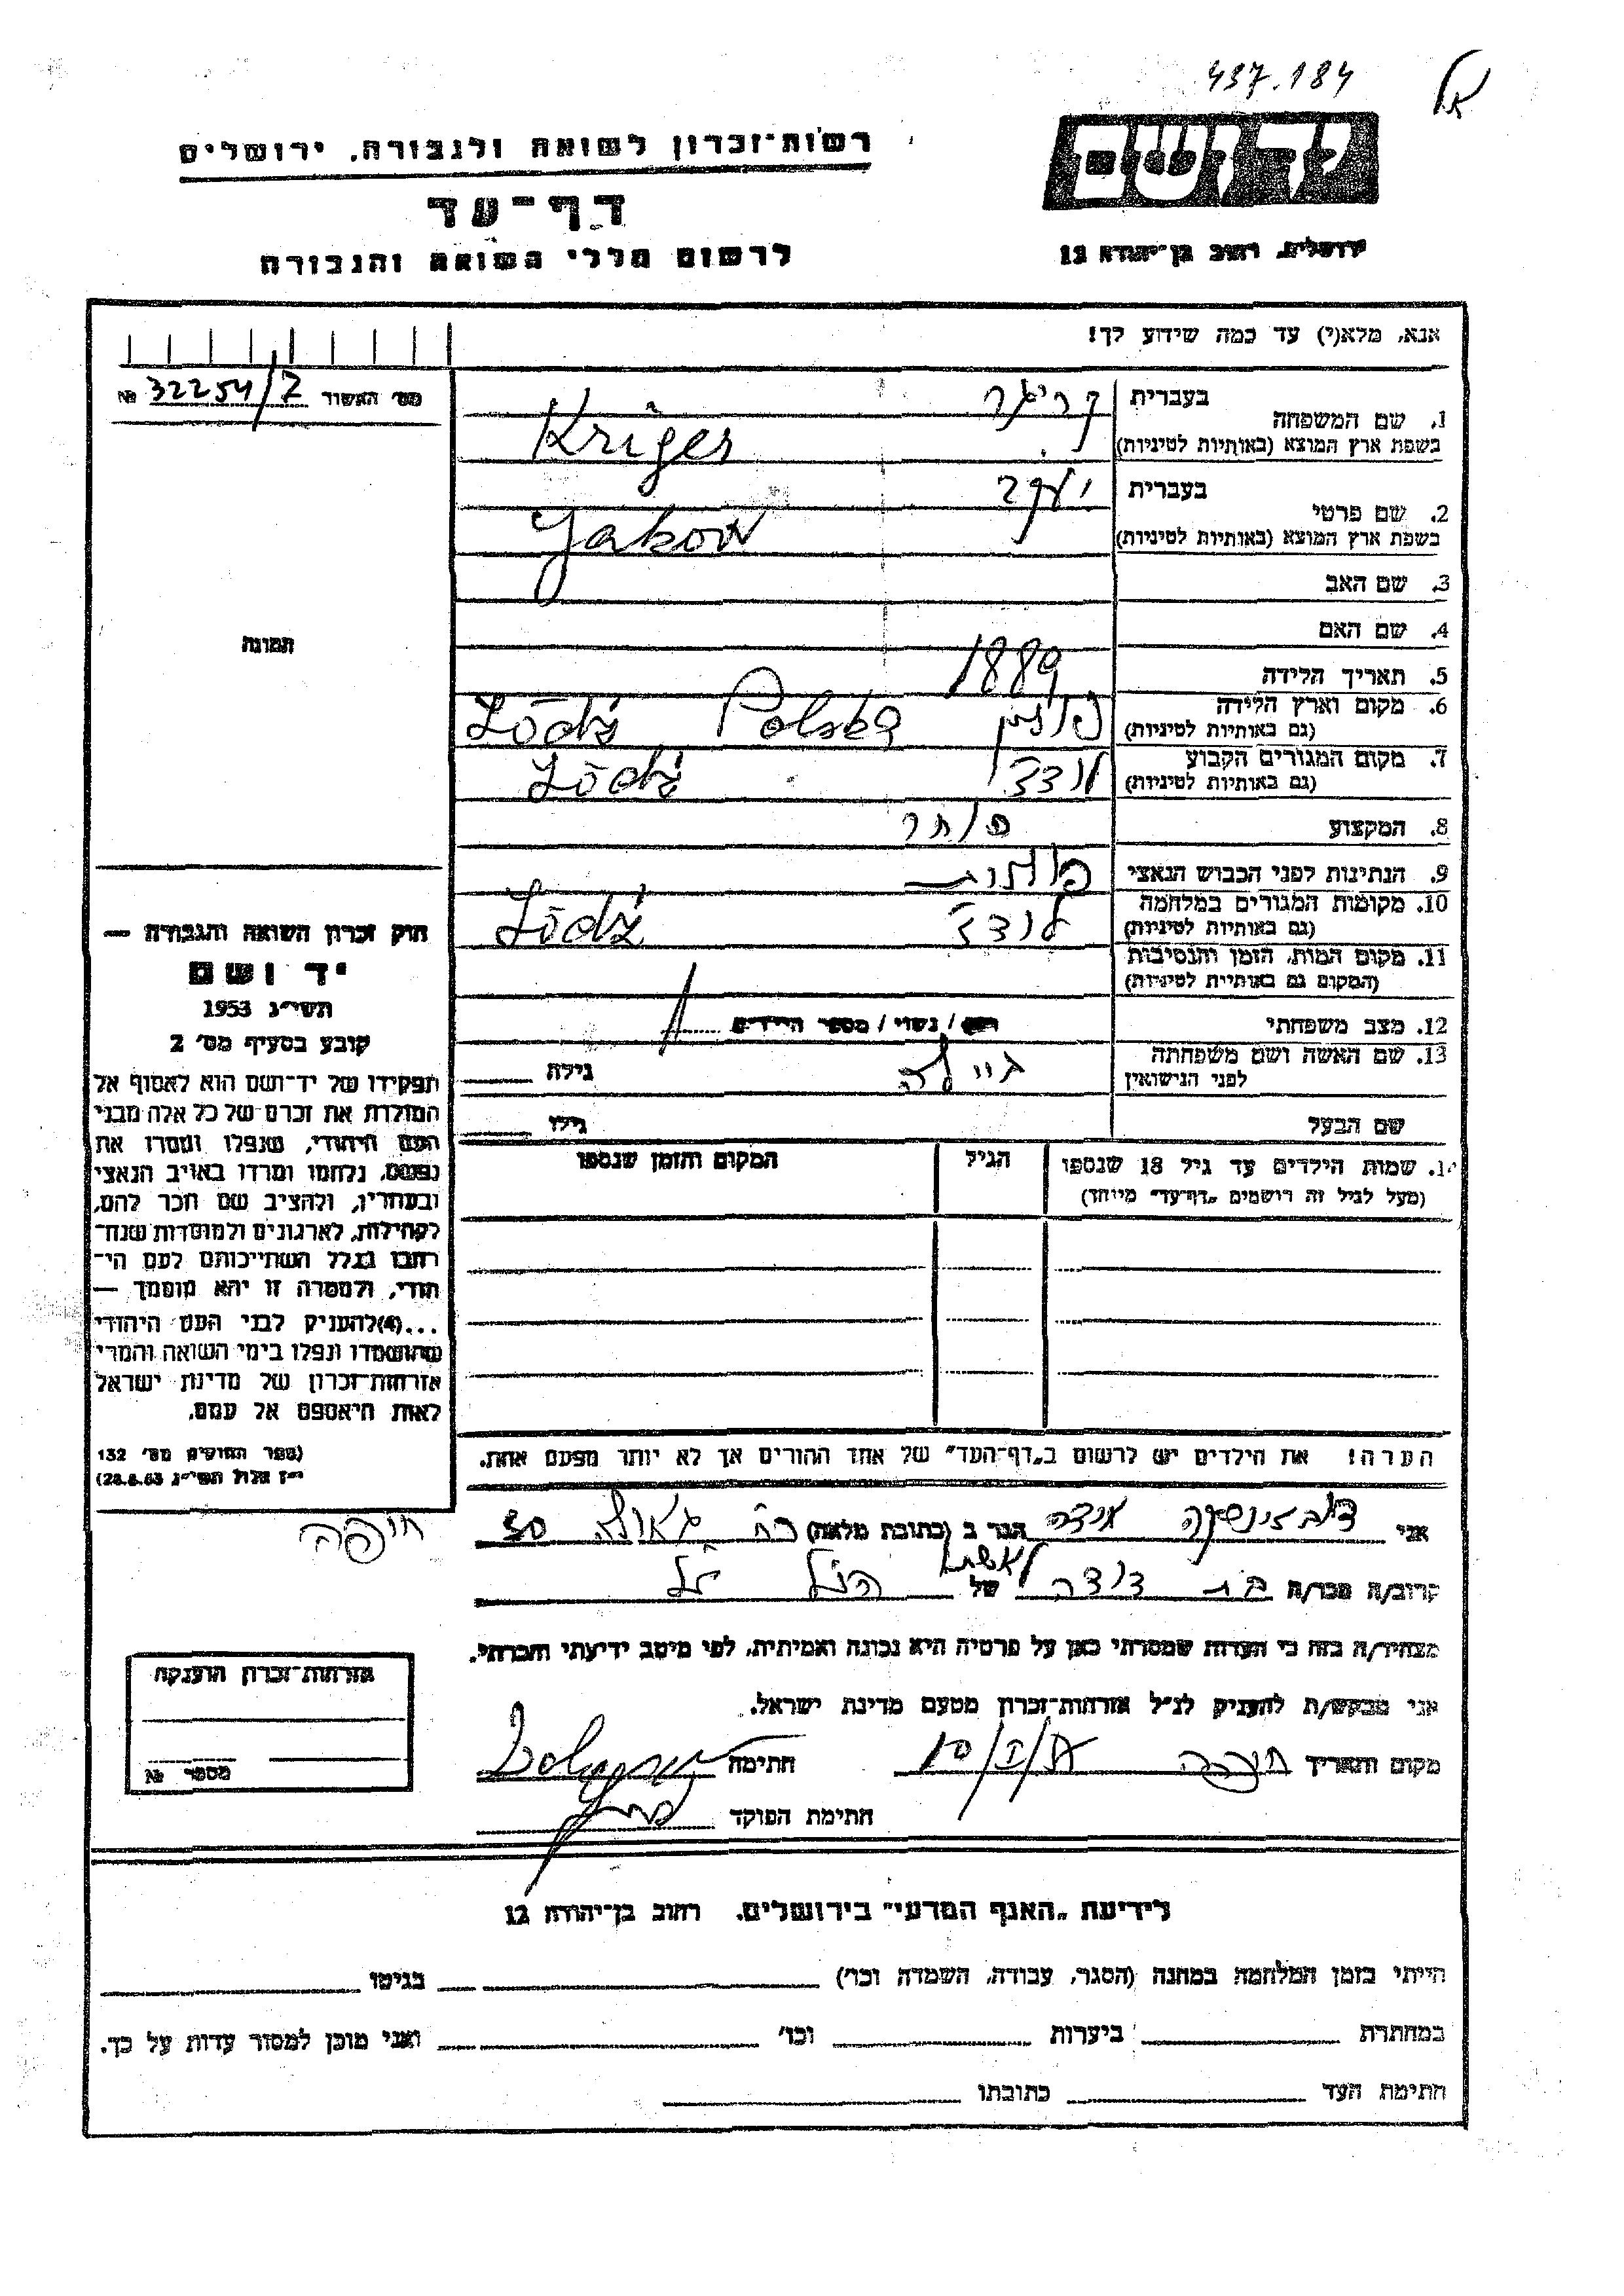 437.184
רשות־זכרון לשואה ולגבורה, ירושלים
יד ושם
דף־עד
ירושלים, רחוב בן־יהודה 12
לרשום חללי השואה והגבורה
אנא, מלא(י) עד כמה שידוע לך!
מס׳ האשור 32254/7 №
1. שם המשפחה בעברית קריגר
בשפת ארץ המוצא (באותיות לטיניות) Kriger
2. שם פרטי בעברית יעקב
בשפת ארץ המוצא (באותיות לטיניות) Jakow
3. שם האב
4. שם האם
תמונה
5. תאריך הלידה 1889
6. מקום וארץ הלידה (גם באותיות לטיניות) פולין Polska Łódź
7. מקום המגורים הקבוע (גם באותיות לטיניות) לודז Łódź
8. המקצוע סוחר
9. הנתינות לפני הכבוש הנאצי פולנית
10. מקומות המגורים במלחמה (גם באותיות לטיניות) לודז Łódź
11. מקום המות, הזמן והנסיבות
(המקום גם באותיות לטיניות)
12. מצב משפחתי רווק / נשוי / מספר הילדים
13. שם האשה ושם משפחתה לפני הנישואין ביילה גילה
שם הבעל גילו
14. שמות הילדים עד גיל 18 שנספו הגיל המקום והזמן שנספו
(מעל לגיל זה רושמים „דף־עד״ מיוחד)
חוק זכרון השואה והגבורה —
יד ושם
תשי״ג 1953
קובע בסעיף מס׳ 2
תפקידו של יד־ושם הוא לאסוף אל
המולדת את זכרם של כל אלה מבני
העם היהודי, שנפלו ומסרו את
נפשם, נלחמו ומרדו באויב הנאצי
ובעוזריו, ולהציב שם וזכר להם,
לקהילות, לארגונים ולמוסדות שנח־
רבו בגלל השתייכותם לעם הי־
הודי, ולמטרה זו יהא מוסמך —
...(4)להעניק לבני העם היהודי
שהושמדו ונפלו בימי השואה והמרי
אזרחות־זכרון של מדינת ישראל
לאות היאספם אל עמם.
(ספר החוקים מס׳ 132
י״ז אלול תשי״ג 28.8.53)
הערה! את הילדים יש לרשום ב„דף־העד״ של אחד ההורים אך לא יותר מפעם אחת.
אני הגר ב (כתובת מלאה) רח׳ גאולה 30 חיפה
קרוב/ה מכר/ה בת דודה של לאשתו הנ״ל
מצהיר/ה בזה כי העדות שמסרתי כאן על פרטיה היא נכונה ואמיתית, לפי מיטב ידיעתי והכרתי.
אני מבקש/ת להעניק לנ״ל אזרחות־זכרון מטעם מדינת ישראל.
מקום ותאריך חיפה חתימה
חתימת הפוקד
אזרחות־זכרון הוענקה
מספר №
לידיעת „האגף המדעי״ בירושלים, רחוב בן־יהודה 12
הייתי בזמן המלחמה במחנה (הסגר, עבודה, השמדה וכו׳) בגיטו
במחתרת ביערות וכו׳ ואני מוכן למסור עדות על כך.
חתימת העד כתובתו